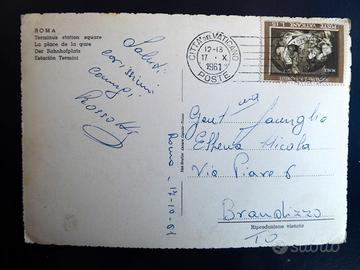 ROMA
Terminus station square
La place de la gare
Der Bahnhofplatz
Estación Termini
Saluti
carissimi
Rossotto
Roma - 17-10-61
CITTÀ DEL VATICANO
12-13
17 · X
1961
POSTE
POSTE VATICANE L. 15
Gent ma Famiglia
Ethena Nicola
Via Piave 6
Brandizzo
TO
Riproduzione vietata
subito